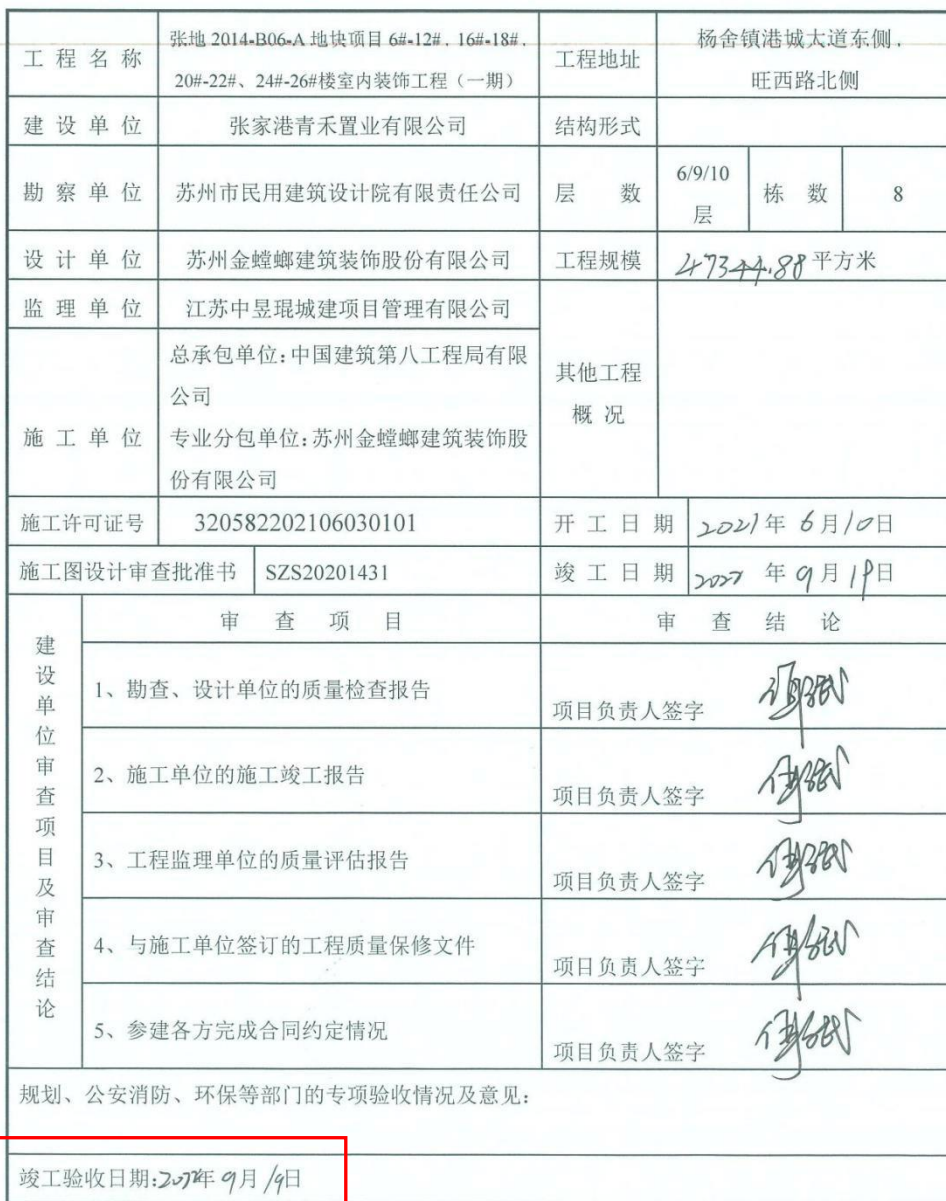 工程名称
张地 2014-B06-A 地块项目 6#-12#、16#-18#、
20#-22#、24#-26#楼室内装饰工程（一期）
工程地址
杨舍镇港城大道东侧、
旺西路北侧
建设单位
张家港青禾置业有限公司
结构形式
勘察单位
苏州市民用建筑设计院有限责任公司
层 数
6/9/10
层
栋 数
8
设计单位
苏州金螳螂建筑装饰股份有限公司
工程规模
47344.88 平方米
监理单位
江苏中昱琨城建项目管理有限公司
其他工程
概 况
施工单位
总承包单位:中国建筑第八工程局有限
公司
专业分包单位:苏州金螳螂建筑装饰股
份有限公司
施工许可证号
320582202106030101
开工日期
2021年 6月10日
施工图设计审查批准书
SZS20201431
竣工日期
年 9月 19日
建设单位审查项目及审查结论
审 查 项 目
审 查 结 论
1、勘查、设计单位的质量检查报告
项目负责人签字
2、施工单位的施工竣工报告
项目负责人签字
3、工程监理单位的质量评估报告
项目负责人签字
4、与施工单位签订的工程质量保修文件
项目负责人签字
5、参建各方完成合同约定情况
项目负责人签字
规划、公安消防、环保等部门的专项验收情况及意见:
竣工验收日期:2022年 9月 19日